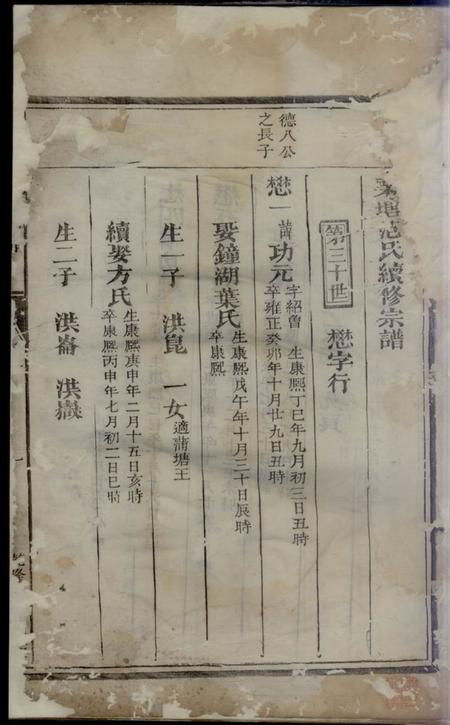 塘范氏續修宗譜
第三十世 懋字行
德八公
之長子
懋一 諱功元 字紹曾 生康熙丁巳年九月初三日丑時
卒雍正癸卯年十月廿九日丑時
娶鐘湖葉氏 生康熙戊午年十月三十日辰時
卒康熙
生一子 洪崑 一女 適蒲塘王
續娶方氏 生康熙庚申年二月十五日亥時
卒康熙丙申年七月初二日巳時
生二子 洪崙 洪嶽